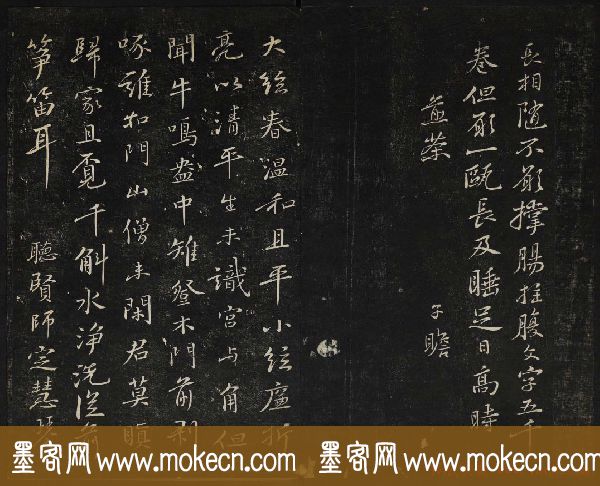 長相隨不願撐腸拄腹文字五千
卷但願一甌長及睡足日高時
煎茶
子瞻
大絃春溫和且平小絃廉折
亮以清平生未識宮与角但
聞牛鳴盎中雉登木門前剝
啄誰扣門山僧未閑君莫瞋
歸家且覓千斛水淨洗從前
箏笛耳 聽賢師定慧琴
墨客网 www.mokecn.com 墨客网 www.mokecn.com